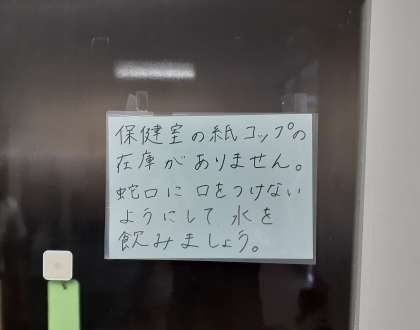 保健室の紙コップの
在庫がありません。
蛇口に口をつけない
ようにして水を
飲みましょう。